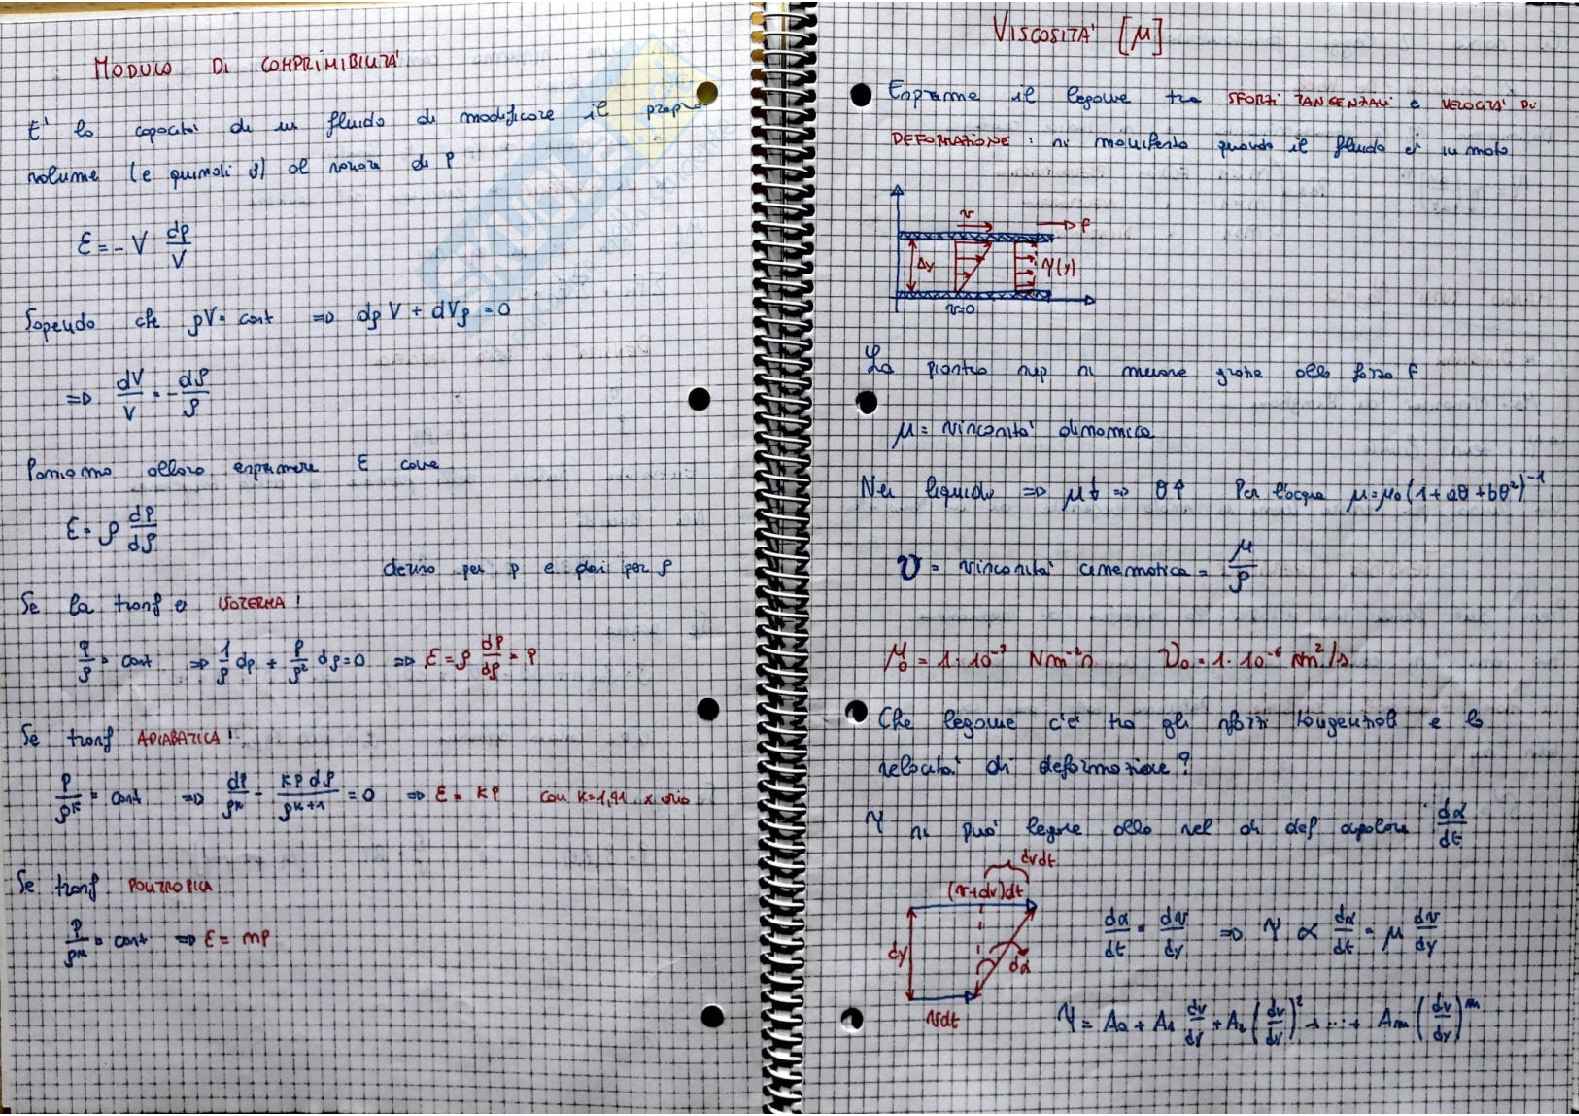 MODULO DI COMPRIMIBILITA'
E' la capacità di un fluido di modificare il proprio
volume (e quindi ρ) al variare di P
ε = - V dp/V
Sapendo che ρV = cost => dρ V + dV ρ = 0
=> dV/V = - dρ/ρ
Possiamo allora esprimere ε come
ε = ρ dp/dρ
derivo per p e poi per ρ
Se la trasf è ISOTERMA:
p/ρ = cost => 1/ρ dp + p/ρ² dρ = 0 => ε = ρ dp/dρ = p
Se trasf ADIABATICA:
p/ρᵏ = cost => dp/ρᵏ - kp dρ/ρᵏ⁺¹ = 0 => ε = kp con k=1,41 x aria
Se trasf POLITROPICA
p/ρⁿ = cost => ε = np
VISCOSITA' [μ]
Esprime il legame tra SFORZI TANGENZIALI e VELOCITA' DI
DEFORMAZIONE: si manifesta quando il fluido è in moto
v
F
Δy
τ(y)
v=0
La piastra sup si muove grazie alla forza F
μ = viscosità dinamica
Nei liquidi => μ↓ => θ↑ Per l'acqua μ=μ₀(1+aθ+bθ²)⁻¹
ν = viscosità cinematica = μ/ρ
μ₀ = 1·10⁻³ Nm⁻²s ν₀ = 1·10⁻⁶ m²/s
Che legame c'è tra gli sforzi tangenziali e la
velocità di deformazione?
τ si può legare alla vel di def angolare dα/dt
dvdt
(v+dv)dt
dy
dα
vdt
dα/dt = dv/dy => τ ∝ dα/dt = μ dv/dy
τ = A₀ + A₁ dv/dy + A₂ (dv/dy)² + ... + Aₙ (dv/dy)ⁿ